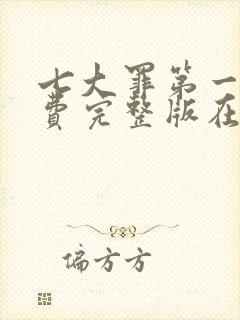 七大罪第一
费完整版在
偏方方